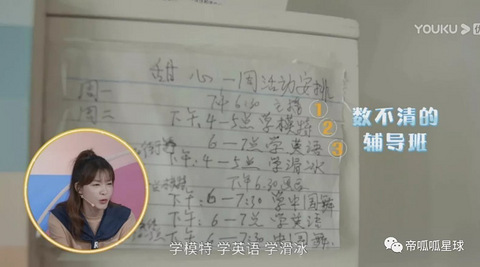 YOUKU
甜心一周活动安排
周一 下午6:00 主持 ①
周二 下午:4-5点学模特 ②
6-7点学英语 ③
下午:4-5点学滑冰
下午6:30
下午:6-7:30 学中国舞
下午:6-7点学英语
下午:6-7:30 中国舞
数不清的
辅导班
学模特 学英语 学滑冰
帝呱呱星球